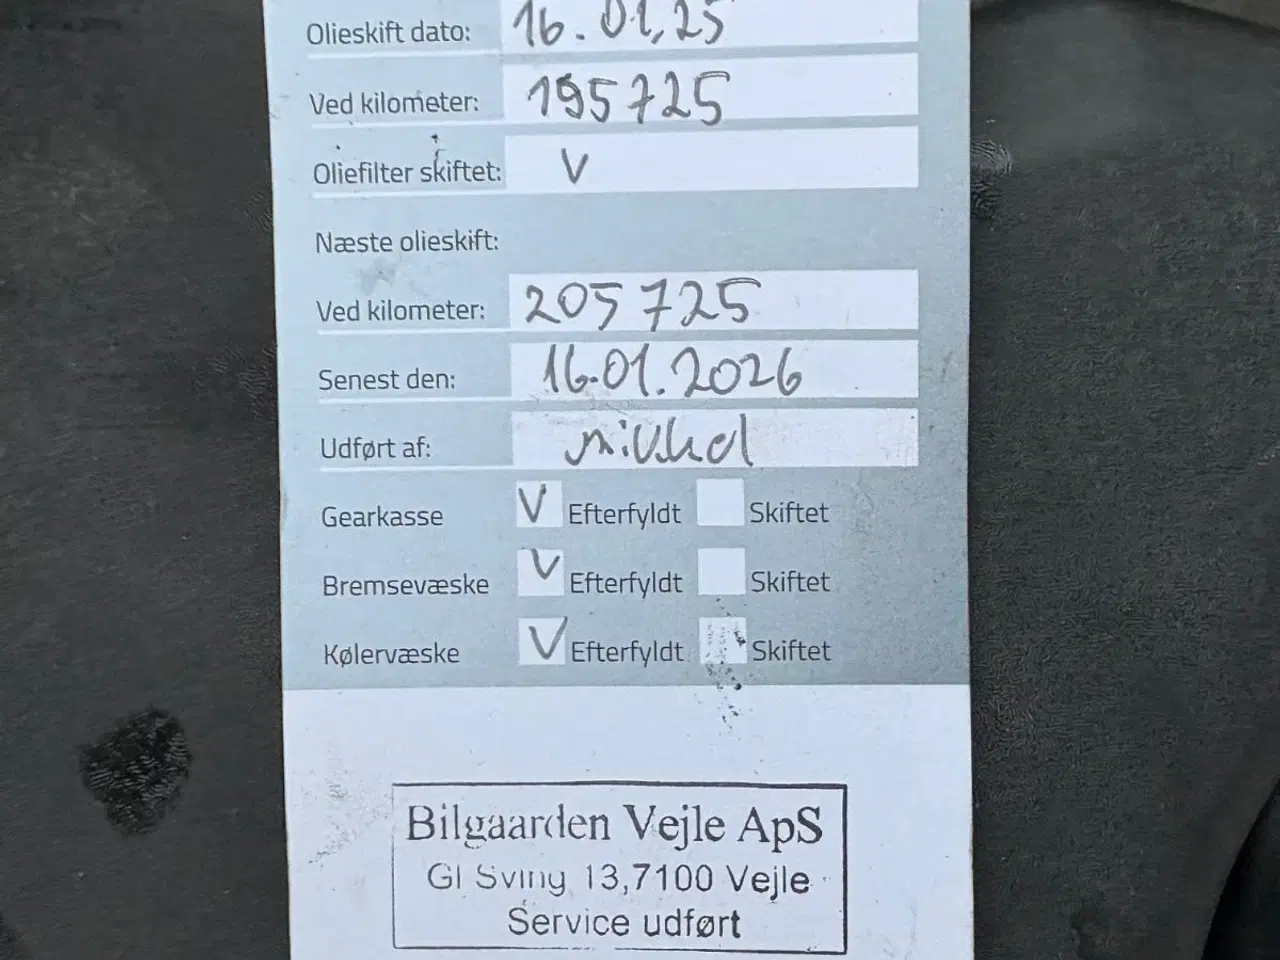 Olieskift dato: 16.01.25
Ved kilometer: 195725
Oliefilter skiftet: V
Næste olieskift:
Ved kilometer: 205725
Senest den: 16.01.2026
Udført af:
Gearkasse V Efterfyldt Skiftet
Bremsevæske V Efterfyldt Skiftet
Kølervæske V Efterfyldt Skiftet
Bilgaarden Vejle ApS
Gl Sving 13,7100 Vejle
Service udført